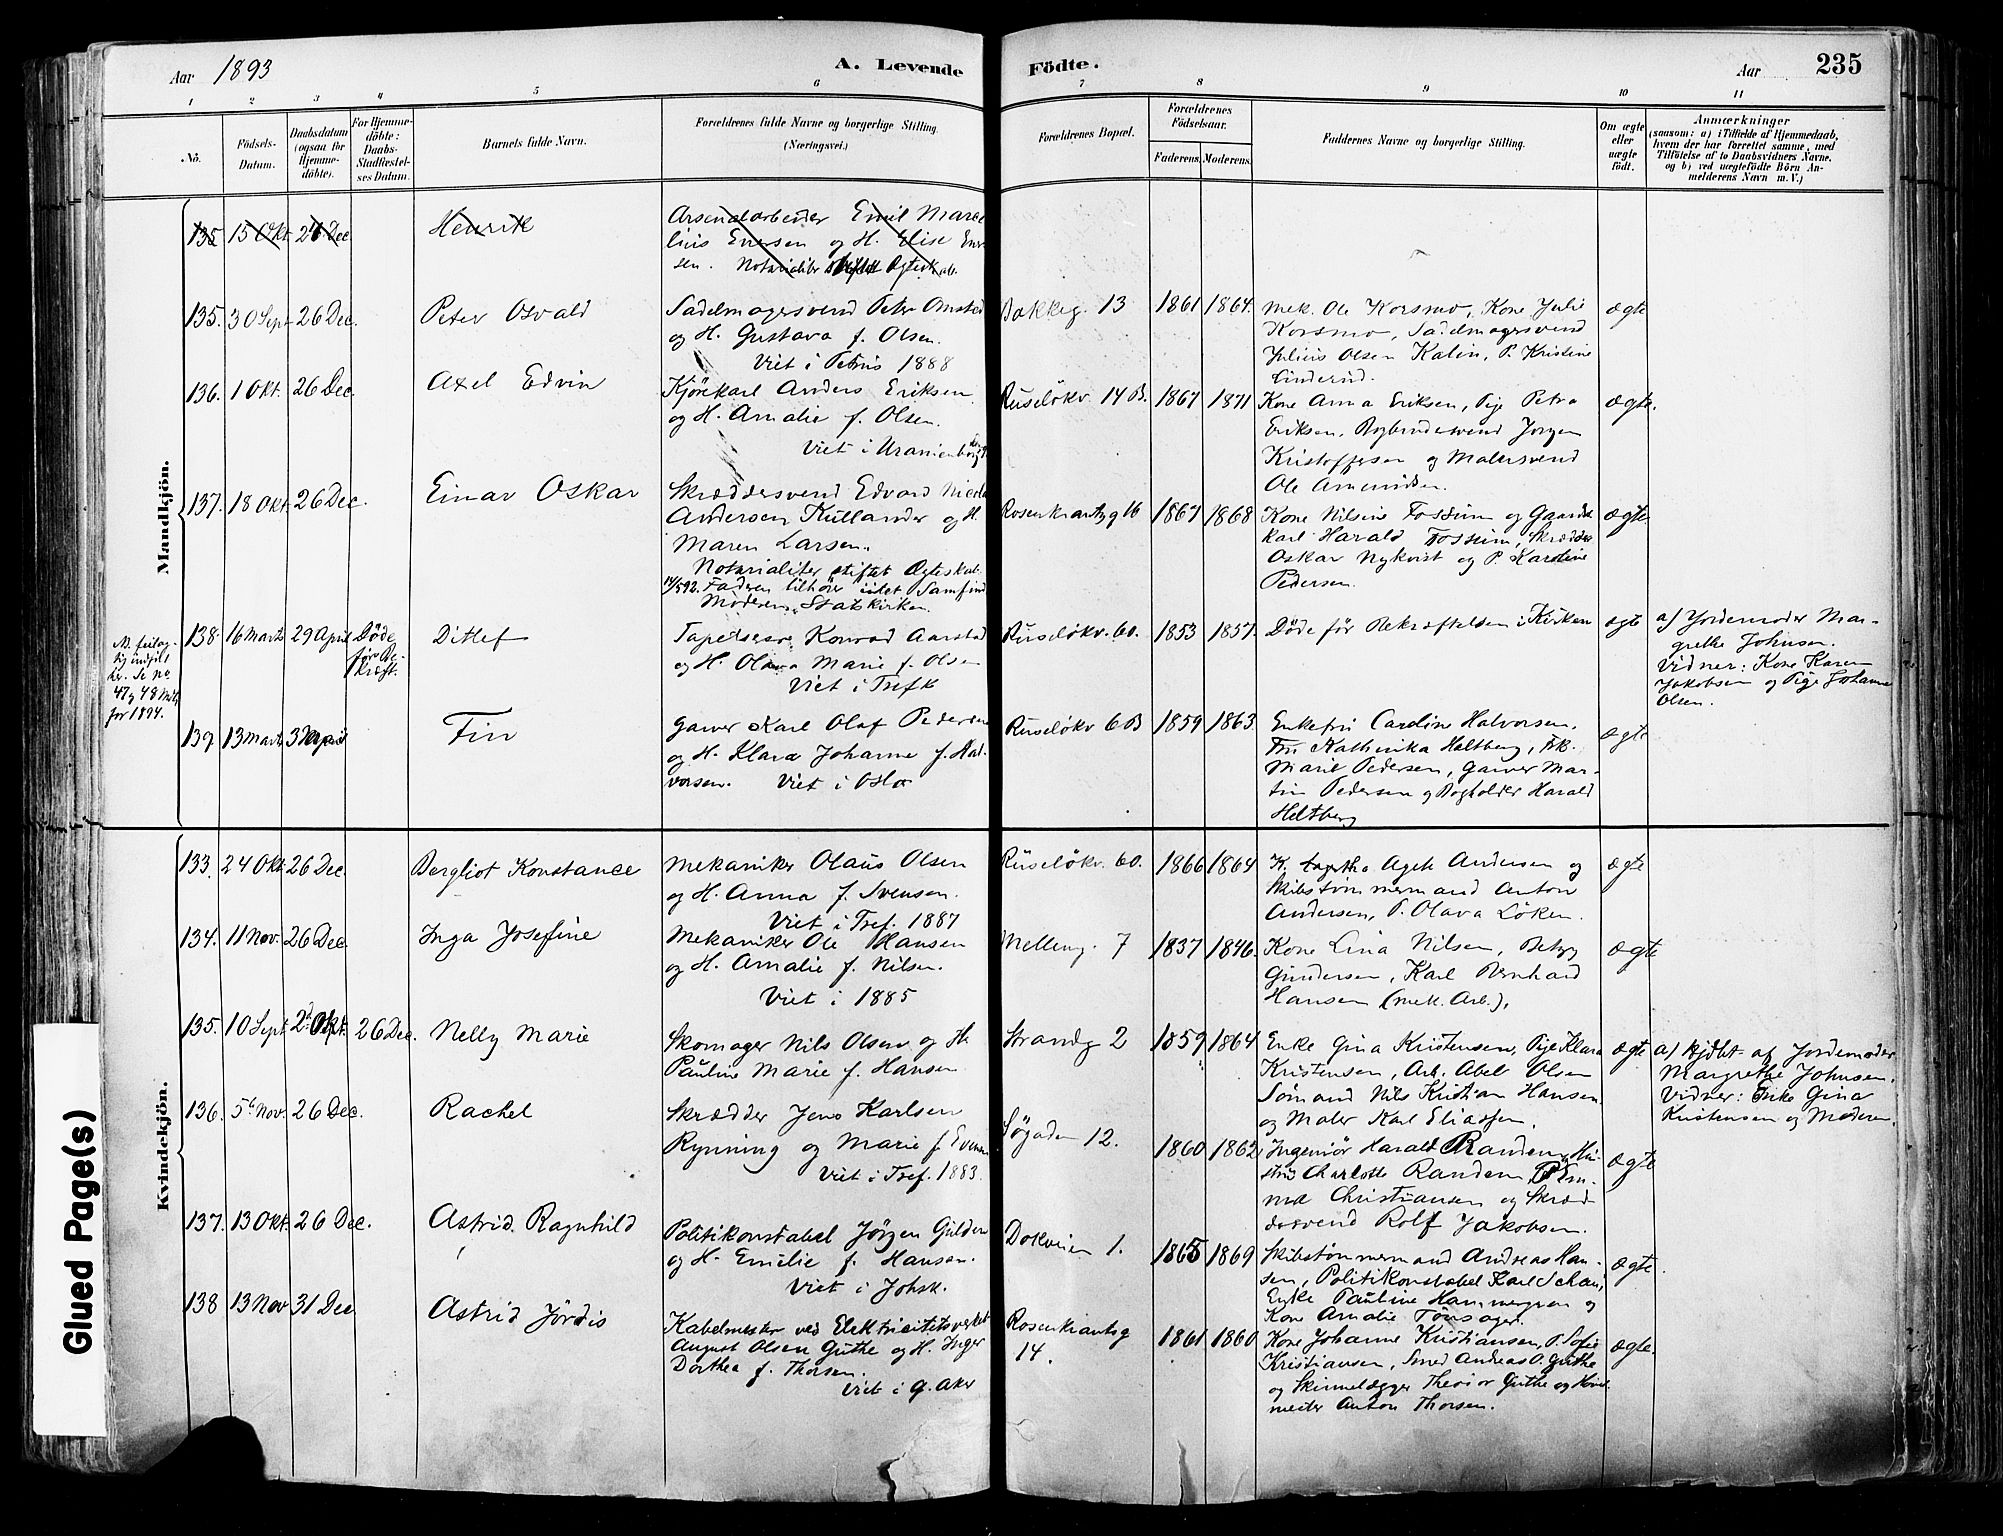 Aar 1893
A. Levende
Födte.
Aar
235
1 2 3 4 5 6 7 8 9 10 11
No.
Födsels-
Datum.
Daabsdatum
(ogsaa for
Hjemme-
döbte).
For Hjemme-
döbte:
Daabs-
Stadfæstel-
ses Datum.
Barnets fulde Navn.
Forældrenes fulde Navne og borgerlige Stilling.
(Næringsvei.)
Forældrenes Bopæl.
Forældrenes
Födselsaar.
Faderens. Moderens.
Faddernes Navne og borgerlige Stilling.
Om ægte
eller
uægte
födt.
Anmærkninger
(saasom: a) i Tilfælde af Hjemmedaab,
hvem der har forrettet samme, med
Tilföielse af to Daabsvidners Navne,
og b) ved uægtefödte Börn An-
melderens Navn m. V.)
Mandkjön.
135 15 Okt. 26 Dec Henrik
Arsenalarbeider Emil Marce
lius Eversen og H. Elise Ever
sen. Notarialiter stiftet Ægteskab.
135. 30 Sept. 26 Dec. Peter Osvald
Sadelmagersvend Peter Omsted
og H. Gustava f. Olsen.
Viet i Petrus 1888
Bakkeg. 13 1861 1864.
Mek. Ole Korsmo, Kone Juli
Korsmo, Sadelmagersvend
Julius Olsen Kalin, P. Kristine
Linderud.
ægte
136. 1 Okt. 26 Dec. Axel Edvin
Kjörekarl Anders Eriksen
og H. Amalie f. Olsen.
Viet i Uranienborg
Ruseløkv. 14 B. 1867 1871
Kone Anna Eriksen, Pige Petra
Eriksen, Bogbindersvend Jørgen
Kristoffersen og Malersvend
Ole Amundsen.
ægte.
137. 18 Okt. 26 Dec. Einar Oskar
Skræddersvend Edvard Nicolai
Andersen Kullander og H.
Maren Larsen.
Notarialiter stiftet Ægteskab
14/5 92. Faderen tilhører intet Samfund
Moderen Statskirken.
Rosenkrantzg 16 1867 1868
Kone Nilsine Fossum og Gaards
karl Harald Fossum, Skrædder
Oskar Nykvist og P. Karoline
Pedersen.
ægte.
N. feilag-
tig indført
her. Se No
47 og 48 Mk
for 1894.
138. 16 Marts 29 April Døde
før Be-
kræft.
Ditlef
Tapetserer Konrad Aarstad
og H. Olava Marie f. Olsen
Viet i Trefk
Ruseløkv. 60. 1853 1857.
Døde før Bekræftelsen i Kirken
ægte
a) Jordemoder Mar-
grethe Johnsen.
Vidner: Kone Karen
Jakobsen og Pige Johanne
Olsen.
139 13 Marts Fin
Garver Karl Olaf Pedersen
og H. Klara Johanne f. Hal-
vorsen. Viet i Oslo
Ruseløkv 6 B 1859 1863.
Enkefru Caroline Halvorsen,
Fru Kathinka Heltberg, Frk.
Marie Pedersen, Garver Mar-
tin Pedersen og Bogholder Harald
Heltberg
ægte
Kvindekjön.
133. 24 Okt. 26 Dec. Bergliot Konstance
Mekaniker Olaus Olsen
og H. Anna f. Svensen.
Viet i Tref. 1887
Ruseløkv. 60. 1866 1864
K. Agete Andersen og
Skibstømmermand Anton
Andersen, P. Olava Løken.
ægte
134. 11 Nov. 26 Dec. Inga Josefine
Mekaniker Ole Hansen
og H. Amalie f. Nilsen.
Viet i 1885
Melleng. 7 1837 1846.
Kone Lina Nilsen, Betzy
Gundersen, Karl Bernhard
Hansen (Mek. Arb.),
ægte
135. 10 Sept. 2 Okt. 26 Dec. Nelly Marie
Skomager Nils Olsen og H.
Pauline Marie f. Hansen
Strandg 2 1859 1864
Enke Gina Kristensen, Pige Klara
Kristensen, Arb. Abel Olsen
Sømand Nils Kristian Hansen
og Maler Karl Eliassen.
ægte
a) hjdbt. af Jordemoder
Margrethe Johnsen.
Vidner: Enke Gina
Kristensen og Moderen.
136. 5te Nov. 26 Dec. Rachel
Skrædder Jens Karlsen
Rynning og Marie f. Evensen
Viet i Tref. 1883.
Søgaden 12. 1860 1862
Ingeniør Harald Randen, Hu-
stru Charlotte Randen, P. Em-
ma Christiansen og Skræd-
dersvend Rolf Jakobsen.
ægte
137. 13 Okt. 26 Dec. Astrid Ragnhild
Politikonstabel Jørgen Gulden
og H. Emilie f. Hansen.
Viet i Johsk.
Dokveien 1. 1865 1869
Skibstømmermand Andreas Han-
sen, Politikonstabel Karl Schau,
Enke Pauline Hammergren og
Kone Amalie Tønsager.
ægte.
138 13 Nov 31 Dec Astrid Jørdis
Kabelmester ved Elektricitetsverket
August Olsen Guthe og H. Inger
Dorthea f. Thorsen.
Viet i G. Aker
Rosenkrantzg
14. 1861 1860
Kone Johanne Kristiansen, P. Sofie
Kristiansen, Smed Andreas O. Guthe
og Skinnelægger Theodor Guthe og
mester Anton Thorsen.
ægte.
Glued Page(s)